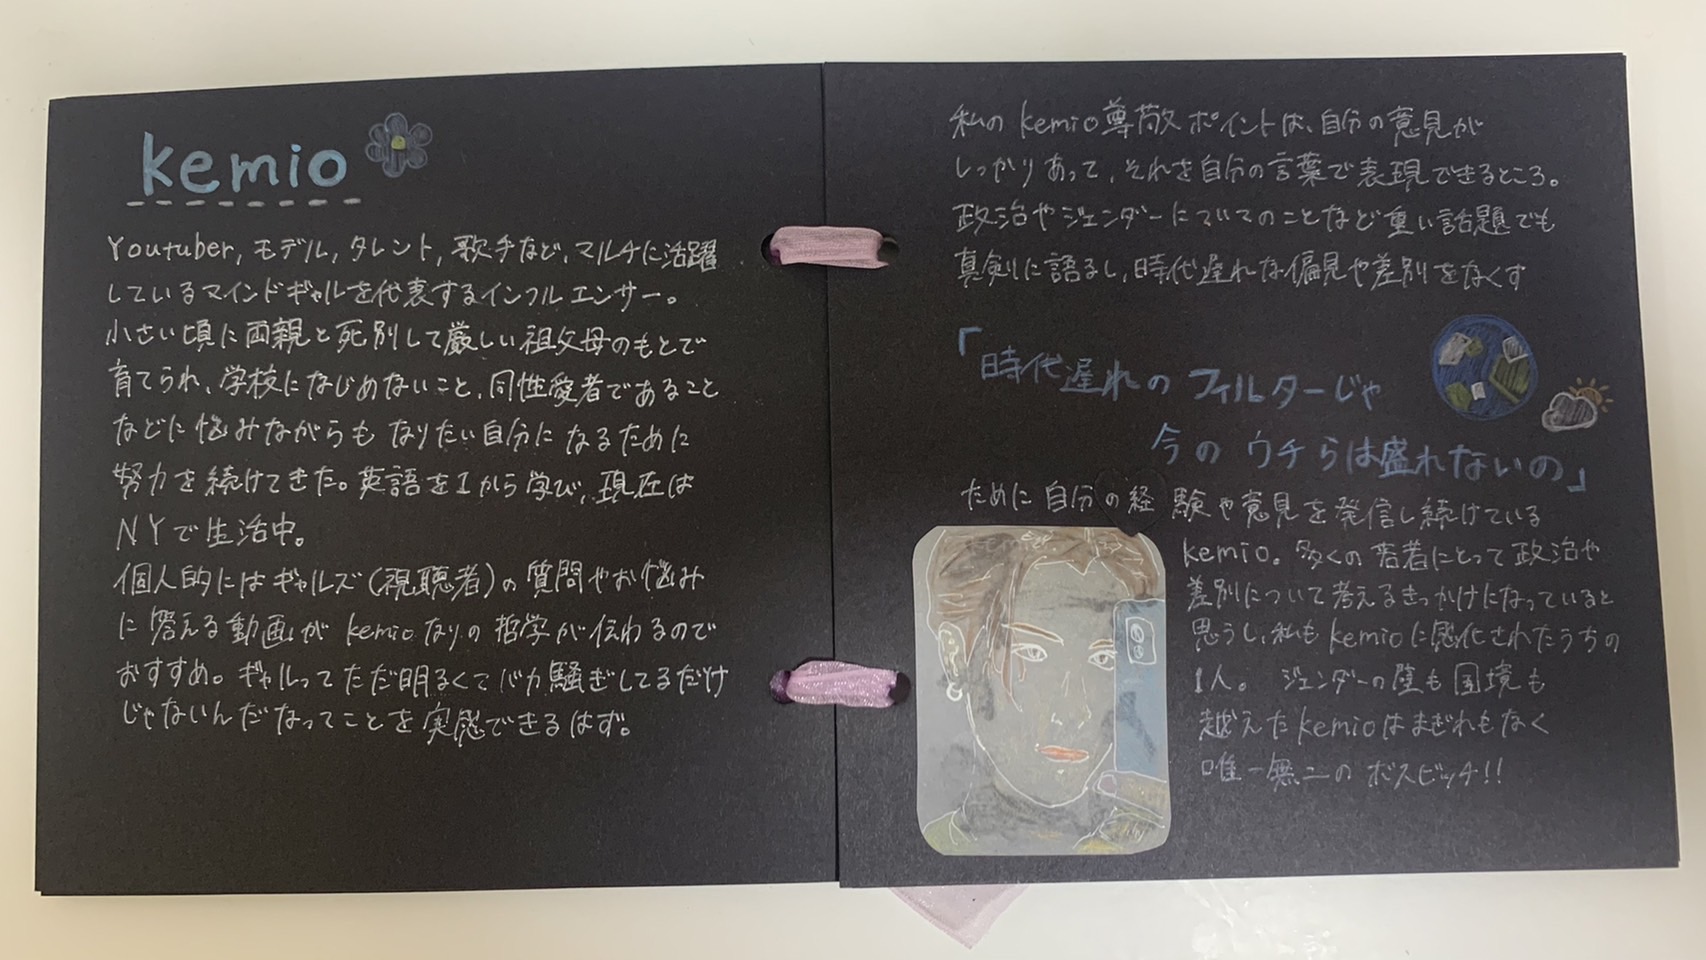 kemio
Youtuber, モデル, タレント, 歌手など, マルチに活躍
しているマインドギャルを代表するインフルエンサー。
小さい頃に両親と死別して厳しい祖父母のもとで
育てられ、学校になじめないこと、同性愛者であること
などに悩みながらも なりたい自分に なるために
努力を続けてきた。英語を1から学び、現在は
NYで生活中。
個人的にはギャルズ(視聴者)の質問やお悩み
に答える動画が kemioなりの哲学が伝わるので
おすすめ。ギャルってただ明るくてバカ騒ぎしてるだけ
じゃないんだなってことを実感できるはず。
私の kemio尊敬ポイントは、自分の意見が
しっかりあって、それを自分の言葉で表現できるところ。
政治やジェンダーについてのことなど重い話題でも
真剣に語るし、時代遅れな偏見や差別をなくす
「時代遅れのフィルターじゃ
今のウチらは盛れないの」
ために自分の経験や意見を発信し続けている
kemio。多くの若者にとって政治や
差別について考えるきっかけになっていると
思うし、私もkemioに感化されたうちの
1人。 ジェンダーの壁も国境も
越えたkemioはまぎれもなく
唯一無二のボスビッチ!!